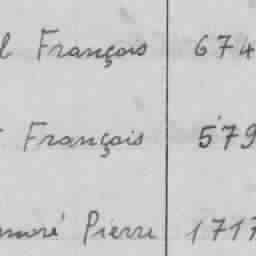 François 674
François 579
Pierre 1717